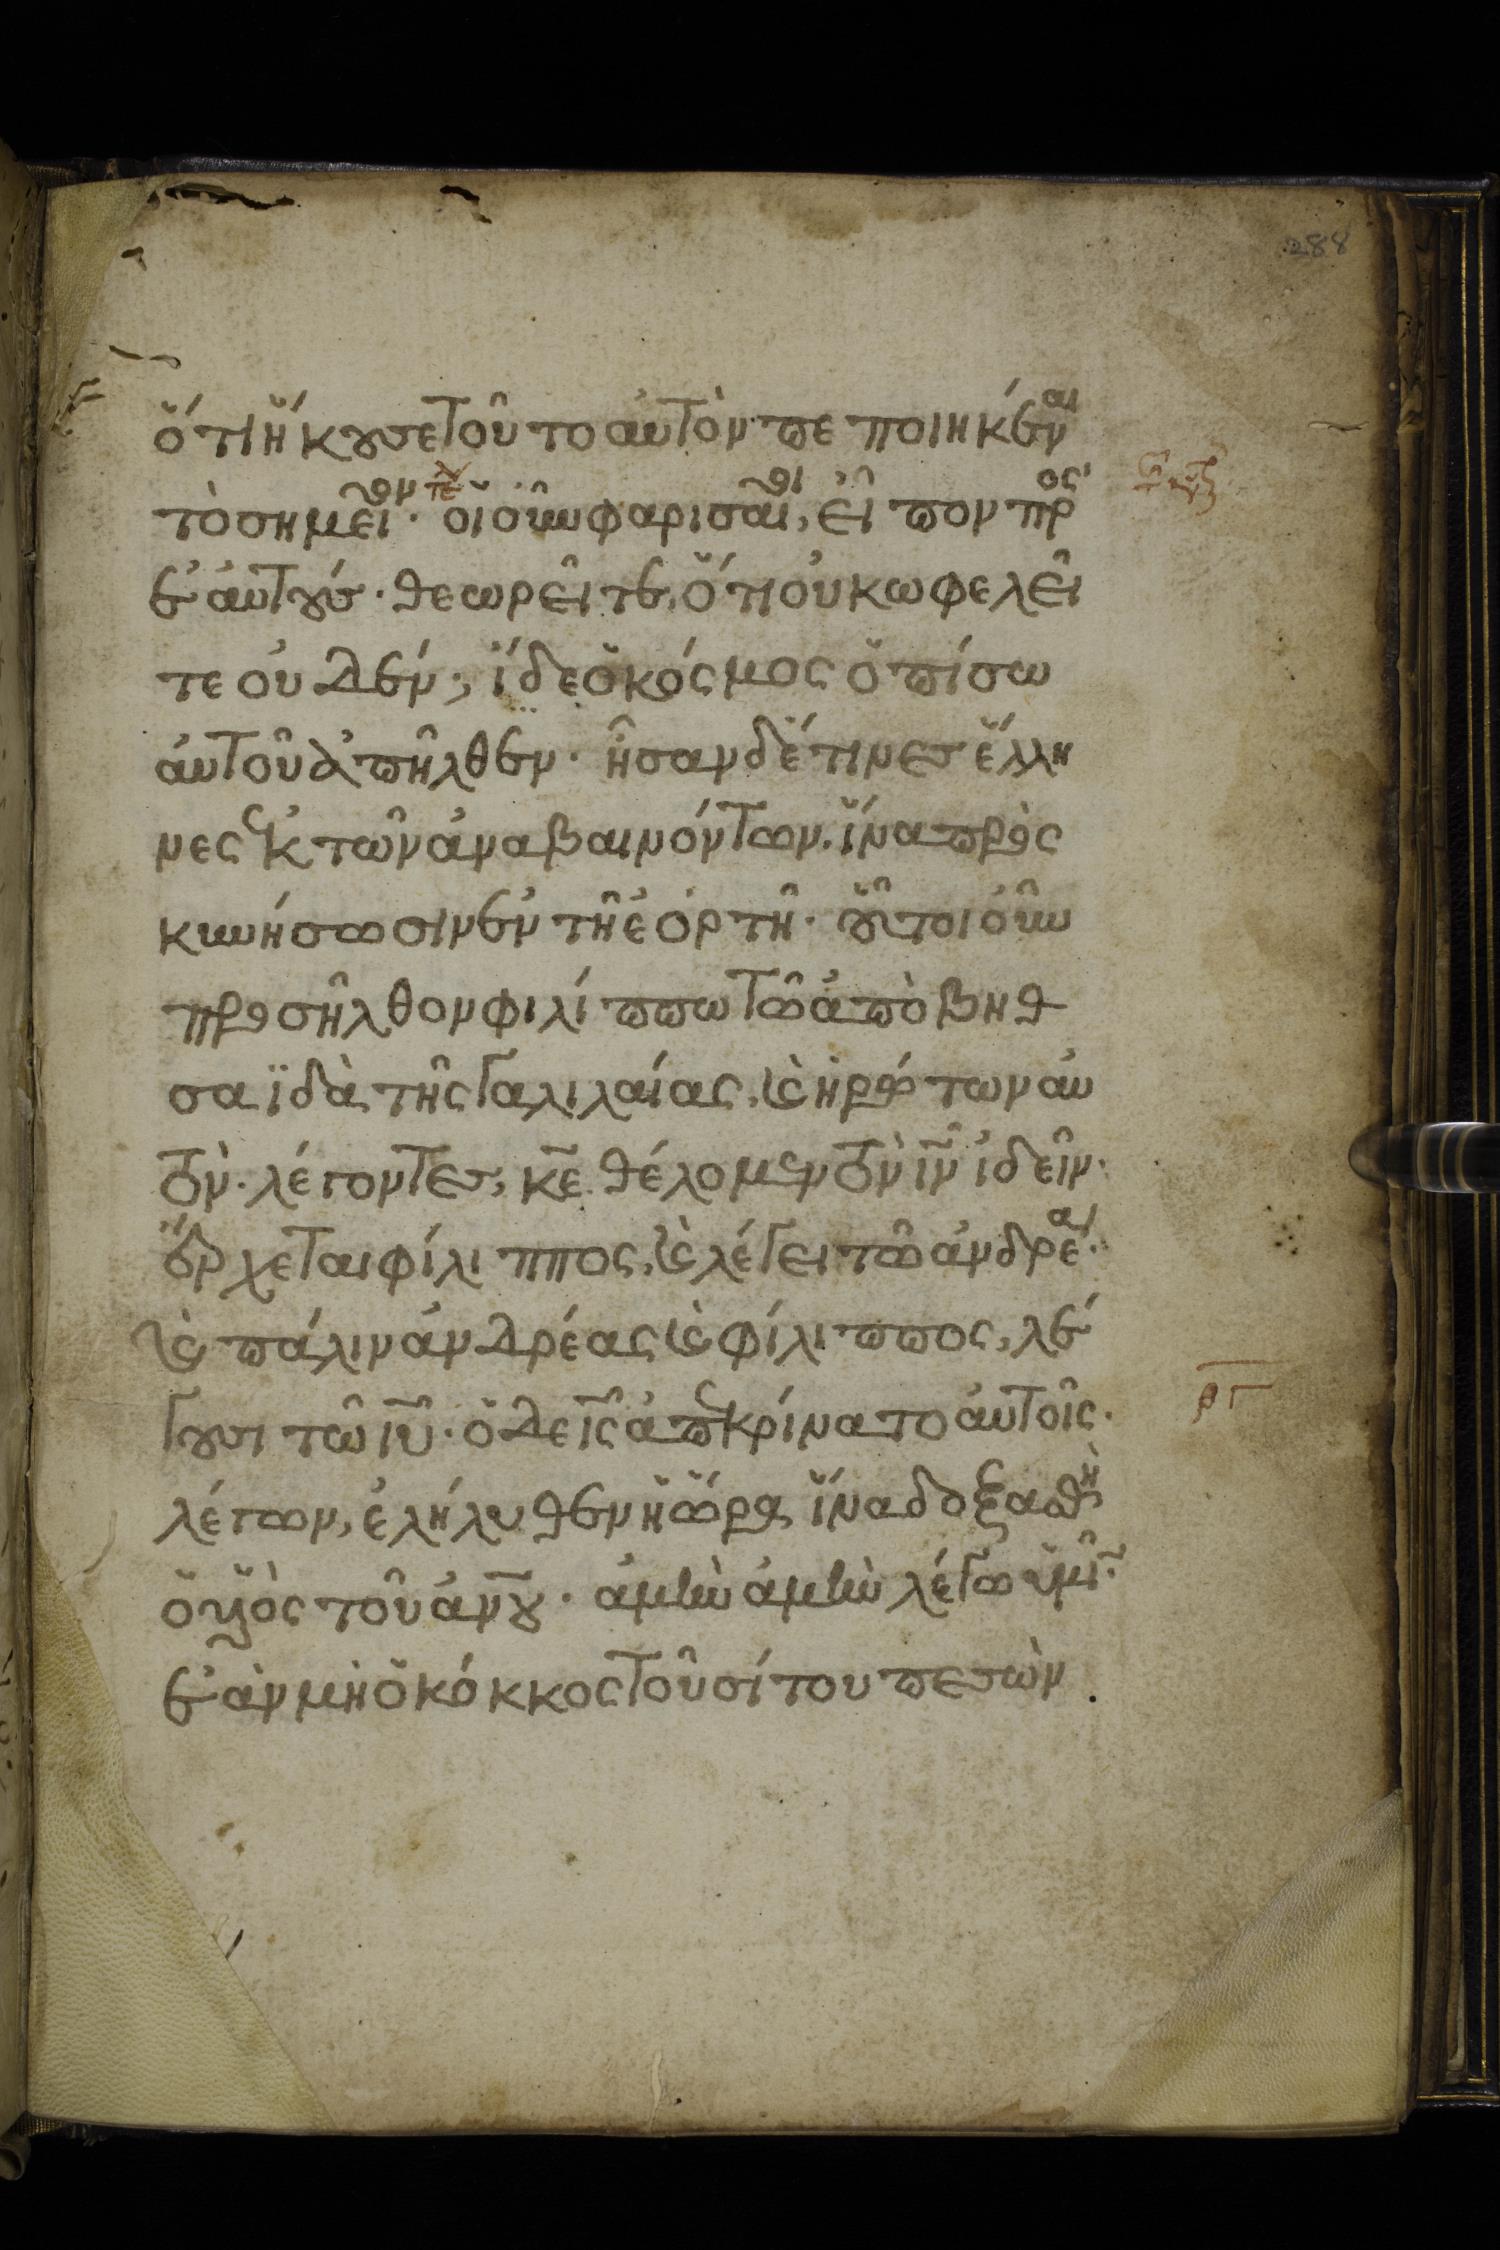 288
ὅτι ἤκουσε τοῦτο αὐτὸν πεποιηκέναι
τὸ σημεῖον· οἱ οὖν φαρισαῖοι, εἶπον πρὸς
ἑαυτούς· θεωρεῖτε, ὅτι οὐκ ὠφελεῖ
τε οὐδέν; ἴδε ὁ κόσμος ὀπίσω
αὐτοῦ ἀπῆλθεν· ἦσαν δέ τινες ἕλλη
νες ἐκ τῶν ἀναβαινόντων, ἵνα προς
κυνήσωσιν ἐν τῇ ἑορτῇ· οὗτοι οὖν
προσῆλθον φιλίππω τῶ ἀπὸ βηθ
σαϊδὰ τῆς γαλιλαίας, καὶ ἠρώτων αὐ
τὸν· λέγοντες, κε̅ θέλομεν τὸν ιν̅ ἰδεῖν·
ἔρχεται φίλιππος, καὶ λέγει τῶ ἀνδρέαι·
καὶ πάλιν ἀνδρέας καὶ φίλιππος, λέ
γουσι τῶ ιυ̅· ὁ δε ις̅ ἀπεκρίνατο αὐτοῖς·
λέγων, ἐλήλυθεν ἡ ὥρα ἵνα δοξασθῆ
ὁ υἱὸς τοῦ ανου̅· ἀμὴν ἀμὴν λέγω ὑμῖν·
ἐὰν μὴ ὁ κόκκος τοῦ σίτου πεσὼν
ργ